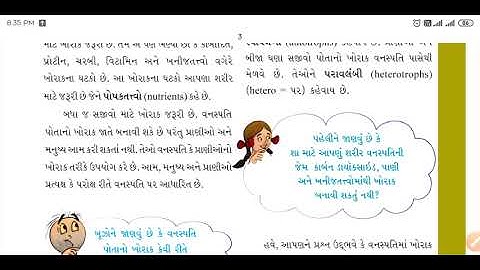 8:35 PM
66
3
માટે ખોરાક જરૂરી છે. તમે એ પણ ભણ્યાં છો કે કાર્બોદિત,
પ્રોટીન, ચરબી, વિટામિન અને ખનીજતત્ત્વો વગેરે
ખોરાકના ઘટકો છે. આ ખોરાકના ઘટકો આપણા શરીર
માટે જરૂરી છે જેને પોષકતત્ત્વો (nutrients) કહે છે.
બધા જ સજીવો માટે ખોરાક જરૂરી છે. વનસ્પતિ
પોતાનો ખોરાક જાતે બનાવી શકે છે પરંતુ પ્રાણીઓ અને
મનુષ્ય આમ કરી શકતાં નથી. તેઓ વનસ્પતિ કે પ્રાણીઓનો
ખોરાક તરીકે ઉપયોગ કરે છે. આમ, મનુષ્ય અને પ્રાણીઓ
પ્રત્યક્ષ કે પરોક્ષ રીતે વનસ્પતિ પર આધારિત છે.
બૂઝોને જાણવું છે કે વનસ્પતિ
પોતાનો ખોરાક કેવી રીતે
(autotrophs) કહેવાય છે. પ્રાણીઓ અને
બીજા ઘણા સજીવો પોતાનો ખોરાક વનસ્પતિ પાસેથી
મેળવે છે. તેઓને પરાવલંબી (heterotrophs)
(hetero = પર) કહેવાય છે.
પહેલીને જાણવું છે કે
શા માટે આપણું શરીર વનસ્પતિની
જેમ કાર્બન ડાયૉક્સાઇડ, પાણી
અને ખનીજતત્ત્વોમાંથી ખોરાક
બનાવી શકતું નથી?
હવે, આપણને પ્રશ્ન ઉદ્ભવે કે વનસ્પતિમાં ખોરાક